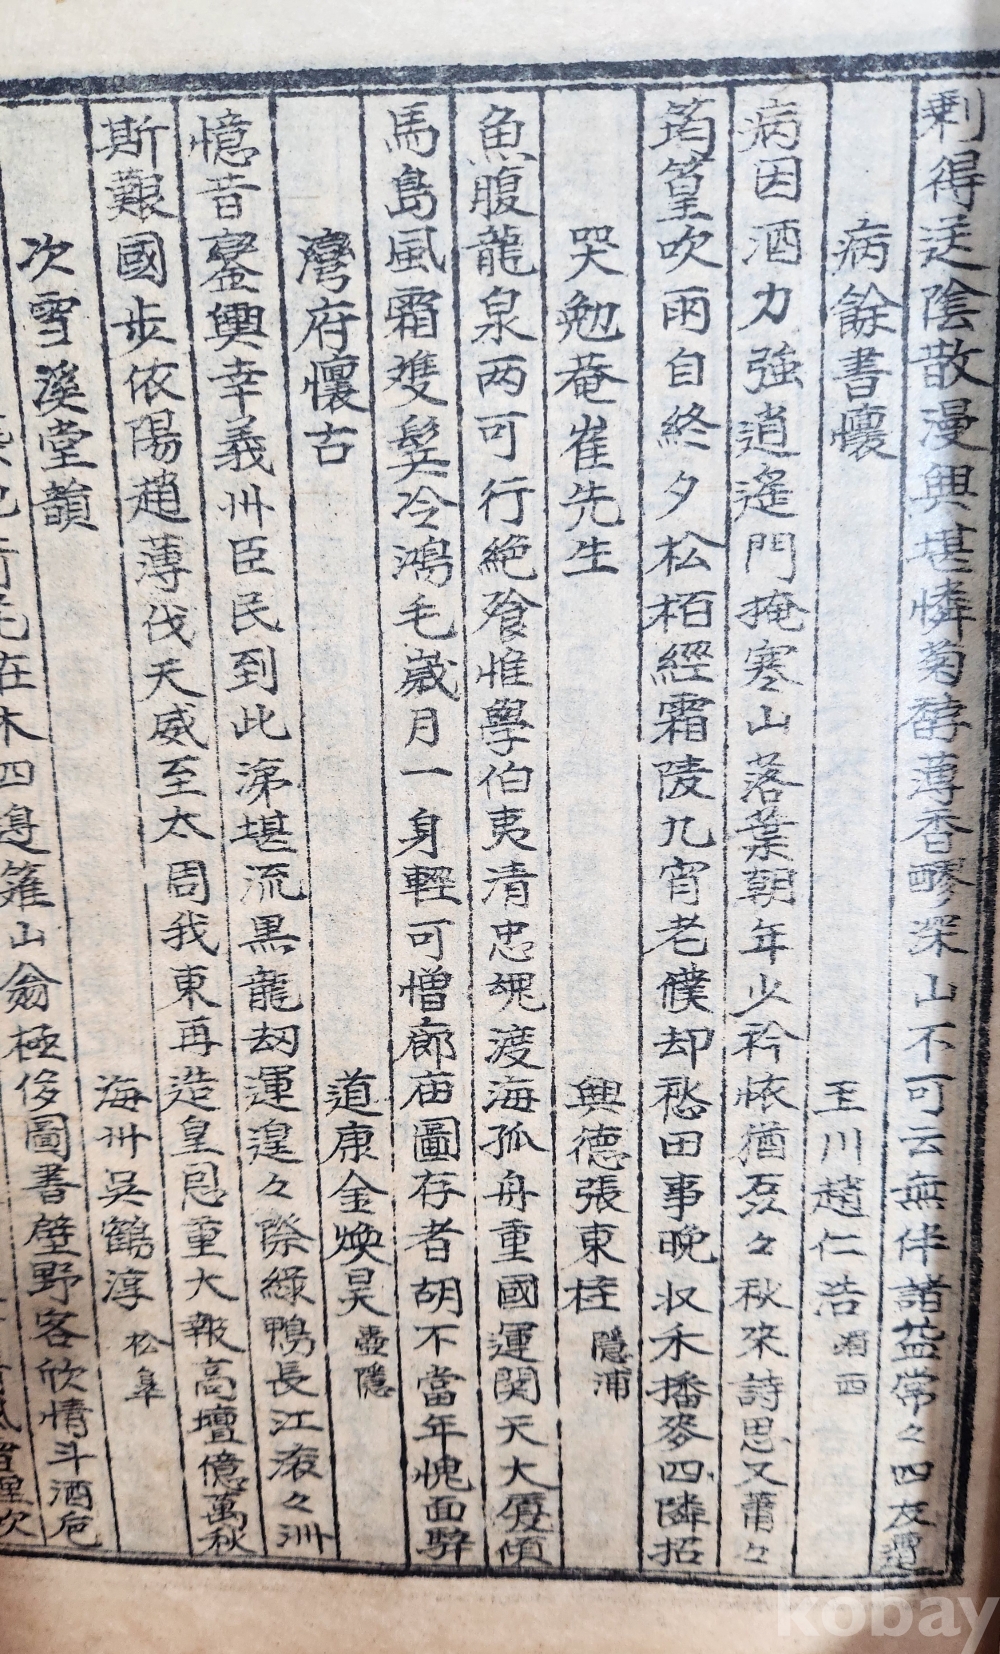 剩得送陰散漫興堪憐菊醉薄香醪深山不可云無伴諸益常々四友遭
病餘書懷 玉川趙仁浩 湘西
病因酒力強逍遙門掩寒山落葉朝年少衿懷猶磊々秋來詩思又蕭々
筠篁吹雨自終夕松栢經霜陵九宵老僕却愁田事晚收禾播麥四隣招
哭勉菴崔先生 興德張東柱 隱浦
魚腹龍泉两可行絶飱惟學伯夷清忠魂渡海孤舟重國運関天大厦傾
馬島風霜雙鬓冷鴻毛歲月一身輕可憎廊庙圖存者胡不當年愧面騂
灣府懷古 道康金煥昊 壺隱
憶昔鑾輿幸義州臣民到此涕堪流黒龍劫運遑々際綠鴨長江液々洲
斯艱國步依陽趙薄伐天威至太周我東再造皇恩重大報高壇億萬秋
次雪溪堂韻 海州吳鶴淳 松皐
在木四邊籬山翁極侈圖書壁野客欣情斗酒卮